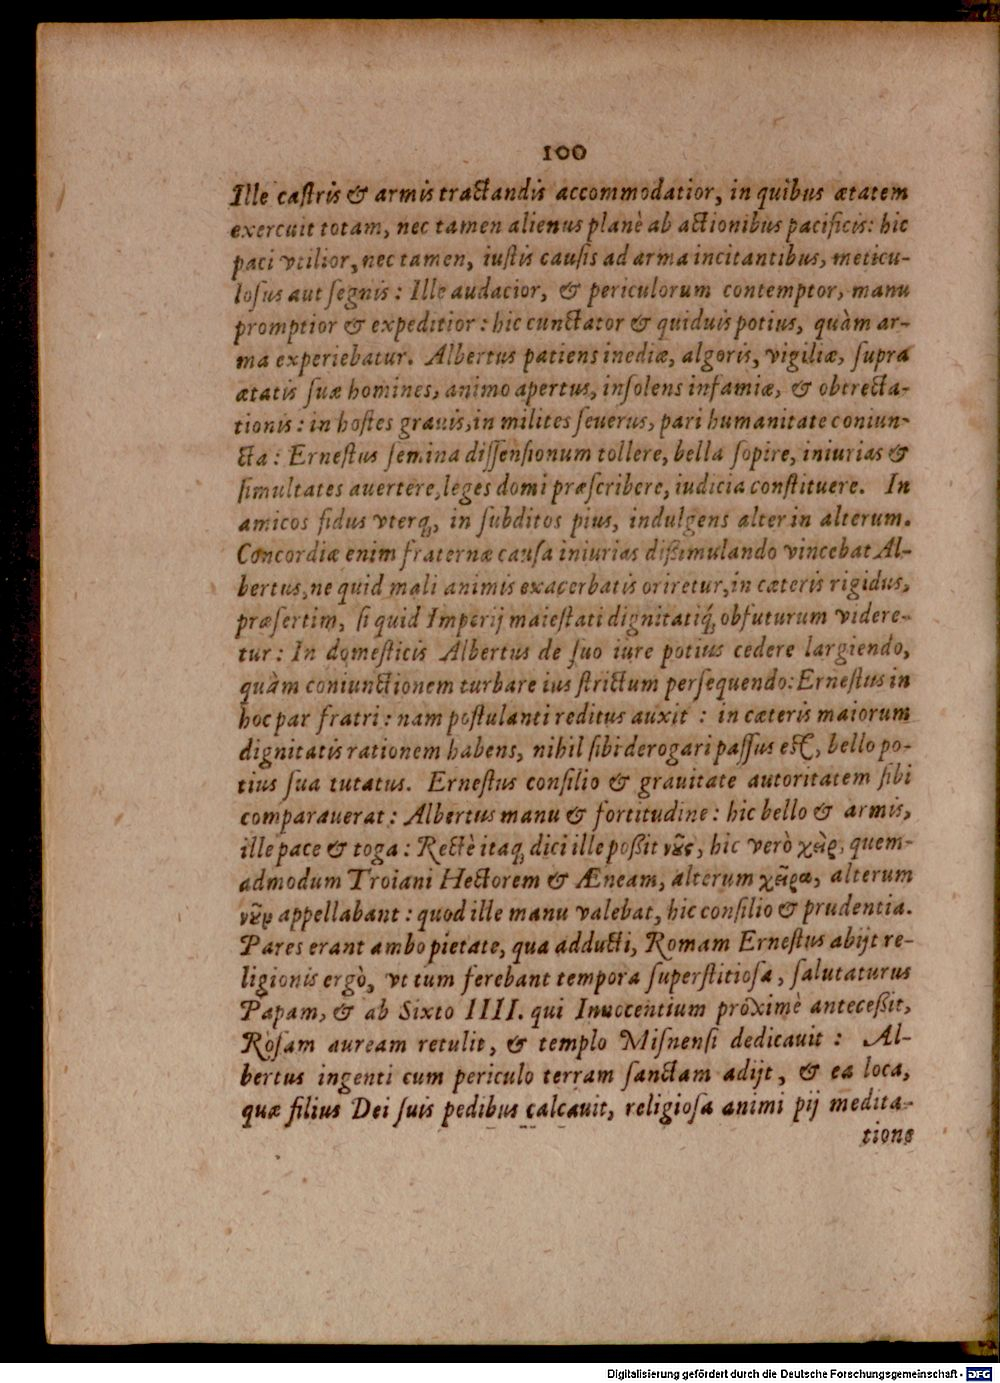 100
Ille caſtris & armis tractandis accommodatior, in quibus ætatem
exercuit totam, nec tamen alienus planè ab actionibus pacificis: hic
paci vtilior, nec tamen, iuſtis cauſis ad arma incitantibus, meticu-
loſus aut ſegnis: Ille audacior, & periculorum contemptor, manu
promptior & expeditior: hic cunctator & quiduis potius, quàm ar-
ma experiebatur. Albertus patiens inediæ, algoris, vigiliæ, ſupra
ætatis ſuæ homines, animo apertus, inſolens infamiæ, & obtrecta-
tionis: in hoſtes grauis, in milites ſeuerus, pari humanitate coniun-
cta: Erneſtus ſemina diſſenſionum tollere, bella ſopire, iniurias &
ſimultates auertere, leges domi præſcribere, iudicia conſtituere. In
amicos fidus vterq́, in ſubditos pius, indulgens alter in alterum.
Concordiæ enim fraternæ cauſa iniurias dißimulando vincebat Al-
bertus, ne quid mali animis exacerbatis oriretur, in cæteris rigidus,
præſertim, ſi quid Imperij maieſtati dignitatiq́; obfuturum videre-
tur: In domeſticis Albertus de ſuo iure potius cedere largiendo,
quàm coniunctionem turbare ius ſtrictum perſequendo: Erneſtus in
hoc par fratri: nam poſtulanti reditus auxit: in cæteris maiorum
dignitatis rationem habens, nihil ſibi derogari paſſus eſt, bello po-
tius ſua tutatus. Erneſtus conſilio & grauitate autoritatem ſibi
comparauerat: Albertus manu & fortitudine: hic bello & armis,
ille pace & toga: Rectè itaq; dici ille poßit νȣ̃ς, hic verò χεὶρ, quem-
admodum Troiani Hectorem & Æneam, alterum χεῖρα, alterum
νȣ̃ν appellabant: quod ille manu valebat, hic conſilio & prudentia.
Pares erant ambo pietate, qua adducti, Romam Erneſtus abijt re-
ligionis ergò, vt tum ferebant tempora ſuperſtitioſa, ſalutaturus
Papam, & ab Sixto IIII. qui Innocentium próximè anteceßit,
Roſam auream retulit, & templo Miſnenſi dedicauit: Al-
bertus ingenti cum periculo terram ſanctam adijt, & ea loca,
quæ filius Dei ſuis pedibus calcauit, religioſa animi pij medita-
tione
Digitalisierung gefördert durch die Deutsche Forschungsgemeinschaft - DFG